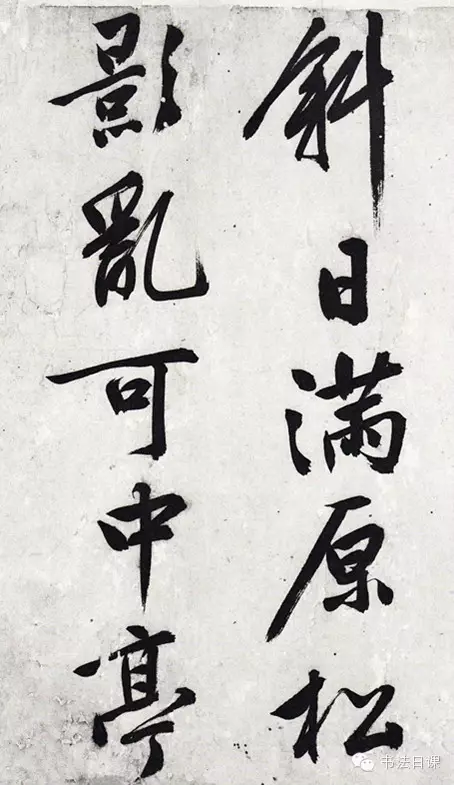 斜日满原松
影亂可中亭
书法日课